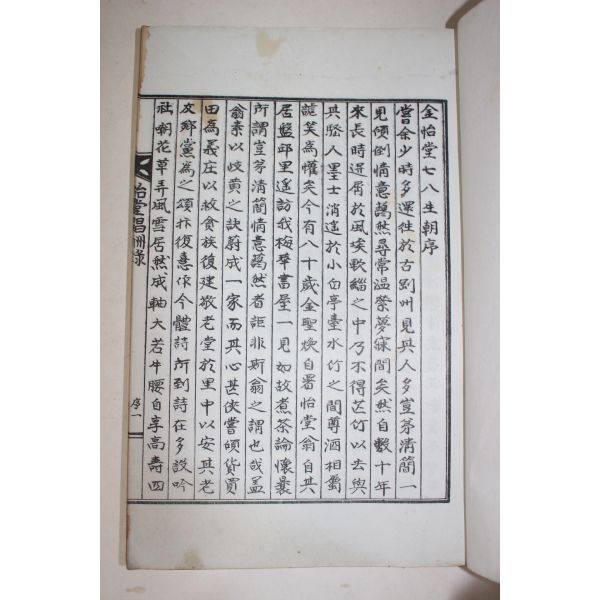 金怡堂七八生朝序
曾余少時多運往於古剡州見其人多豈弟淸簡一
見傾倒情意藹然尋常溫縈夢寐間矣然自數十年
來長時逕屑於風埃軟緇之中乃不得芒竹以去與
其騷人墨士消遙於小白亭臺水竹之間尊酒相屬
詼笑爲懽矣今有八十歲金聖煥自署怡堂翁自其
居盤邱里遙訪我梅華書屋一見如故煮茶論懷曩
所謂豈弟淸簡情意藹然者詎非斯翁之謂也哉盖
翁素以岐黃之訣蔚成一家而其心甚俠嘗傾貲買
田爲義庄以救貧族復建敬老堂於里中以安其老
友鄕黨爲之頌抃復意作今體詩所到詩在多設吟
社嘲花草弄風雪居然成軸大若牛腰自享高壽四
怡堂唱酬錄
序一